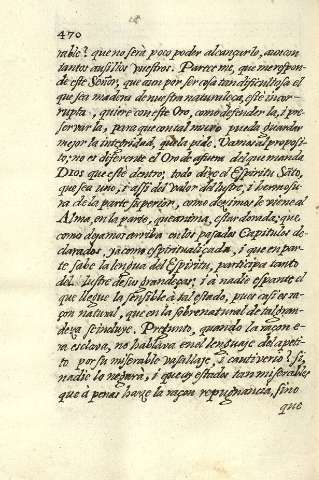 470
rable? que no sera poco poder alcançarlo, aun con
tantos ausilios vuestros. Pareceme, que me respon-
de este Señor, que aun por ser cosa tan dificultosa el
que sea madera de nuestra naturaleça, esté incor-
rupta, quiere con este Oro, como defenderla, i pre-
servarla, para que con tal muro pueda guardar
mejor la integridad, que la pide. Vamos al proposi-
to, no es diferente el Oro de afuera del que manda
Dios que esté dentro, todo dice el Espiritu Sãto,
que sea uno, i assi del valor del lustre, i hermosu-
ra de la parte superior, como decimos le viene al
Alma, en la parte, que anima, estar dorada; que
como dejamos arriba en los pasados Capitulos de-
clarados, ja como espiritualiçada, i que en par-
te sabe la lengua del Espiritu, participa tanto
del lustre de sus grandeças, i a nadie espante el
que llegue la sensible à tal estado, pues casi es ra-
çon natural, que en la sobrenatural de tal gran-
deza se incluye. Pregunto, quando la raçon e-
ra esclava, no hablava en el lenguaje del apeti-
to por su miserable vasallaje, i cautiverio? si,
nadie lo negarà, i que ay estados tan miserables
que à penas hace la raçon repugnancia, sino
que